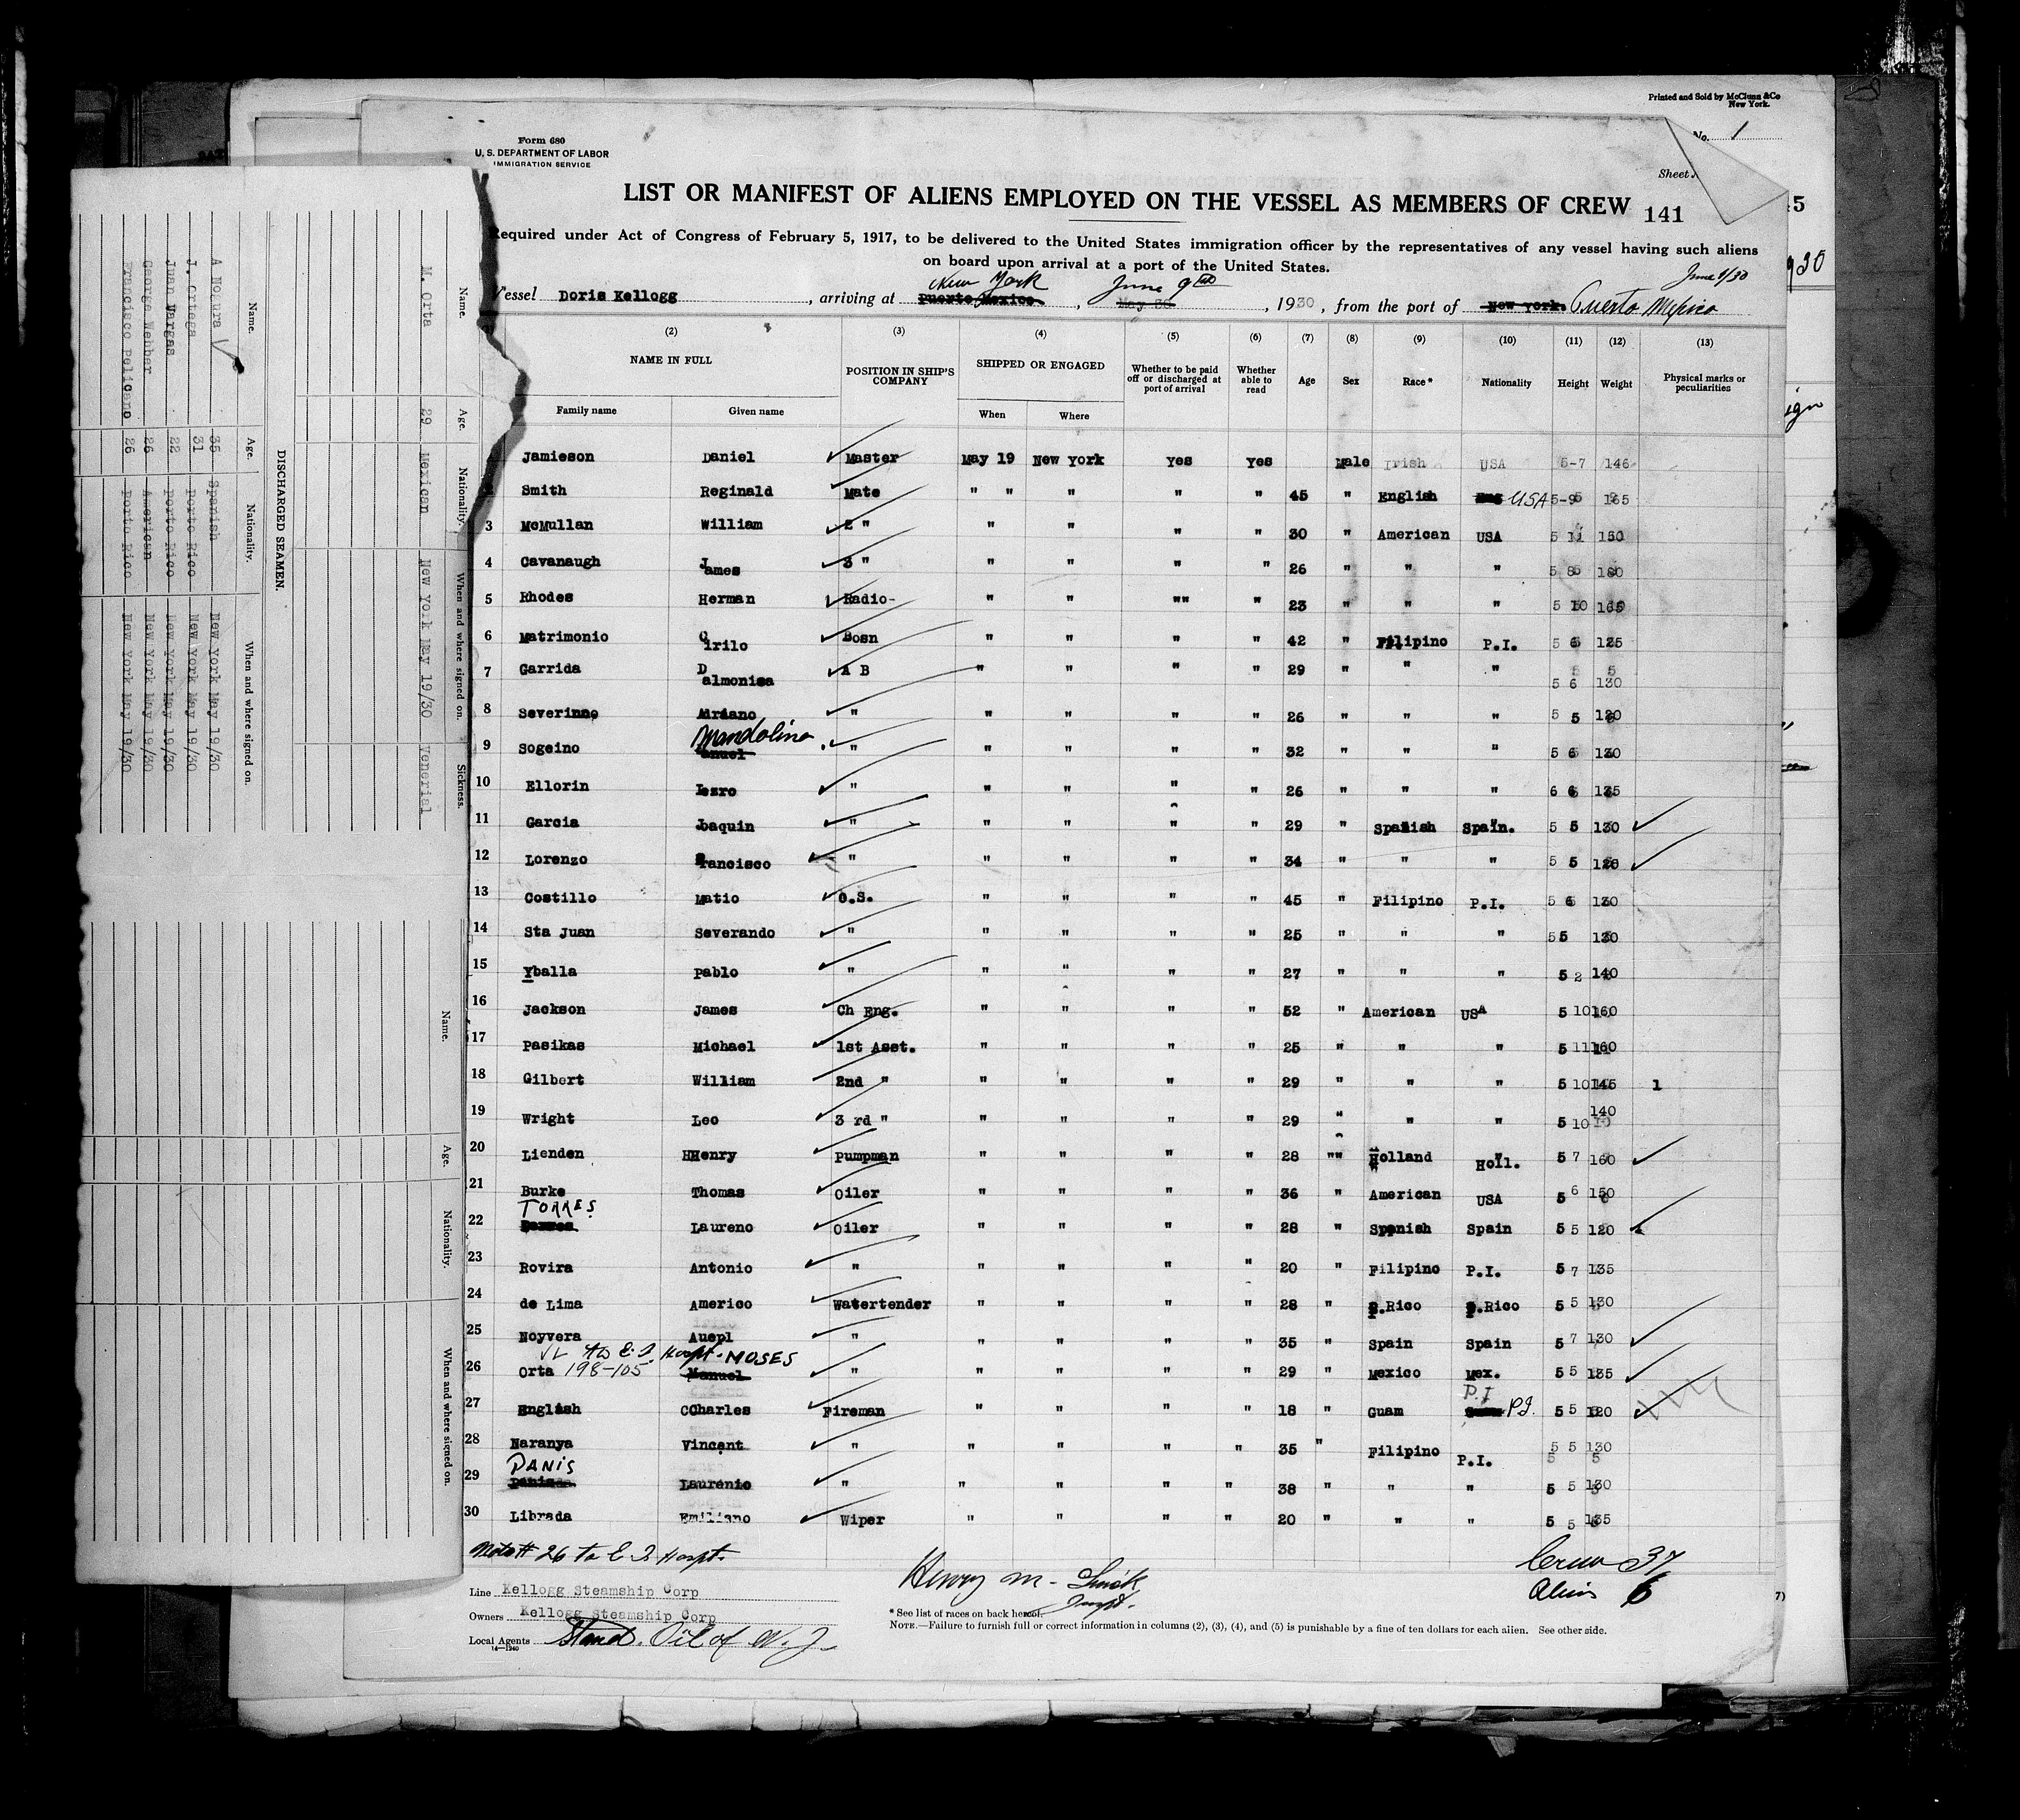 Printed and Sold by McClunn &Co
New York.
No. 1
Form 680
U. S. DEPARTMENT OF LABOR
IMMIGRATION SERVICE
Sheet
LIST OR MANIFEST OF ALIENS EMPLOYED ON THE VESSEL AS MEMBERS OF CREW 141
Required under Act of Congress of February 5, 1917, to be delivered to the United States immigration officer by the representatives of any vessel having such aliens
on board upon arrival at a port of the United States.
New York June 9th June 1/30
Vessel Doris Kellogg, arriving at Puerto Mexico, May 30, 1930, from the port of New York. Puerto Mexico
(2) (3) (4) (5) (6) (7) (8) (9) (10) (11) (12) (13)
NAME IN FULL POSITION IN SHIP'S COMPANY SHIPPED OR ENGAGED Whether to be paid off or discharged at port of arrival Whether able to read Age Sex Race* Nationality Height Weight Physical marks or peculiarities
Family name Given name When Where
Jamieson Daniel Master May 19 New York Yes Yes Male Irish USA 5-7 146
Smith Reginald Mate " " " " " 45 " English USA 5-9 165
3 McMullan William 2 " " " " " 30 " American USA 5 11 150
4 Cavanaugh James 3 " " " " " 26 " " " 5 8 180
5 Rhodes Herman Radio- " " "" " 23 " " " 5 10 165
6 Matrimonio Cirilo Bosn " " " " 42 " Filipino P.I. 5 6 125
7 Garrida Dalmonisa A B " " " " 29 " " " 5 6 130
8 Severinno Adriano " " " " " 26 " " " 5 5 120
Mandolino
9 Sogeino anuel " " " " " 32 " " " 5 6 130
10 Ellorin Lezro " " " " " 26 " " " 6 6 135
11 Garcia Joaquin " " " " " 29 " Spanish Spain. 5 5 130
12 Lorenzo Francisco " " " " " 34 " " " 5 5
13 Costillo Matio O.S. " " " " 45 " Filipino P.I. 5 6 130
14 Sta Juan Severando " " " " " 25 " " " 55 130
15 Yballa Pablo " " " " " 27 " " " 5 2 140
16 Jackson James Ch Eng. " " " " 52 " American USA 5 10 160
17 Pasikas Michael 1st Asst. " " " " 25 " " " 5 11 160
18 Gilbert William 2nd " " " " " 29 " " " 5 10 145 1
19 Wright Leo 3 rd " " " " " 29 " " " 5 10 140
20 Lienden HHenry Pumpman " " " " 28 "" Holland Holl. 5 7 160
21 Burke Thomas Oiler " " " " 36 " American USA 5 6 150
TORRES
22 Laureno Oiler " " " " 28 " Spenish Spain 5 5 120
23 Rovira Antonio " " " " " 20 " Filipino P.I. 5 7 135
24 de Lima Americo Watertender " " " " 28 " P.Rico P.Rico 5 5 130
25 Noyvera Auepl " " " " " 35 " Spain Spain 5 7 130
to E. I. Hospt. MOSES
26 Orta 198-105 Manuel " " " " " 29 " Mexico Mex. 5 5 135
P.I
27 English CCharles Fireman " " " " 18 " Guam P.I. 5 5 120
28 Naranya Vincent " " " " " 35 " Filipino P.I. 5 5 130
DANIS
29 Laurenio " " " " " 38 " " " 5 5 130
30 Librada Emiliano Wiper " " " " 20 " " " 5 5 135
Note # 26 to E I Hospt.
Crew 37
Aliens 6
Henry M.
Inspt.
Line Kellogg Steamship Corp
Owners Kellogg Steamship Corp
Local Agents Stand. Oil of N. J.
14—1240
* See list of races on back hereof.
NOTE.—Failure to furnish full or correct information in columns (2), (3), (4), and (5) is punishable by a fine of ten dollars for each alien. See other side.
Name. Age. Nationality. When and where signed on. Sickness.
M. Orta 29 Mexican New York May 19/30 Venerial
DISCHARGED SEAMEN.
Name. Age. Nationality. When and where signed on.
A Nogura 35 Spanish New York May 19/30
J. Ortega 31 Porto Rico New York May 19/30
Juan Vargas 22 Porto Rico New York May 19/30
George Wenber 26 American New York May 19/30
Francisco Pelicero 26 Porto Rico New York May 19/30
Name. Age. Nationality. When and where signed on.